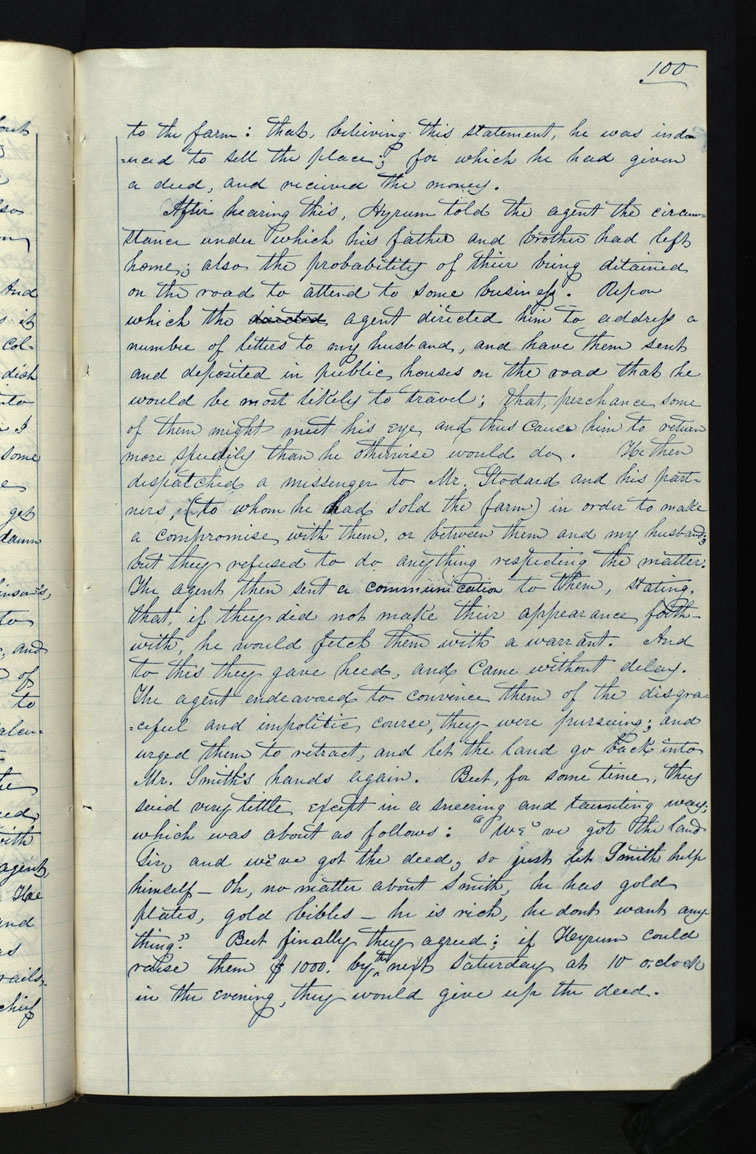 100
to the farm: that, believing this statement, he was indu-
-uced to sell the place; for which he had given
a deed, and received the money.
After hearing this, Hyrum told the agent the circum-
stance under which his father and brother had left
home; also the probability of their being detained
on the road to attend to some business. Upon
which the directed agent directed him to address a
number of letters to my husband, and have them sent
and deposited in public houses on the road that he
would be most likely to travel; that, perchance some
of them might meet his eye, and thus cause him to return
more speedily than he otherwise would do. He then
despatched a messenger to Mr. Stodard and his part-
ners, (to whom he had sold the farm) in order to make
a compromise with them, or between them and my husband;
but they refused to do anything respecting the matter.
The agent then sent a communication to them, stating,
that, if they did not make their appearance forth-
with, he would fetch them with a warrant. And
to this they gave heed, and came without delay.
The agent endeavored to convince them of the disgra-
-ceful and impolitic course, they were pursuing; and
urged them to retract, and let the land go back into
Mr. Smith's hands again. But, for some time, they
said very little except in a sneering and taunting way;
which was about as follows: "We've got the land
Sir, and we've got the deed, so just let Smith help
himself— Oh, no matter about Smith, he has gold
plates, gold bibles — he is rich, he dont want any
thing." But finally they agreed; if Hyrum could
raise them $1000. by the next Saturday at 10 o,clock
in the evening, they would give up the deed.
out
so
And
it
col-
dish
into
I
some
get
damn
to
and
of
to
the
with
agent
The
and
as
rails,
chief